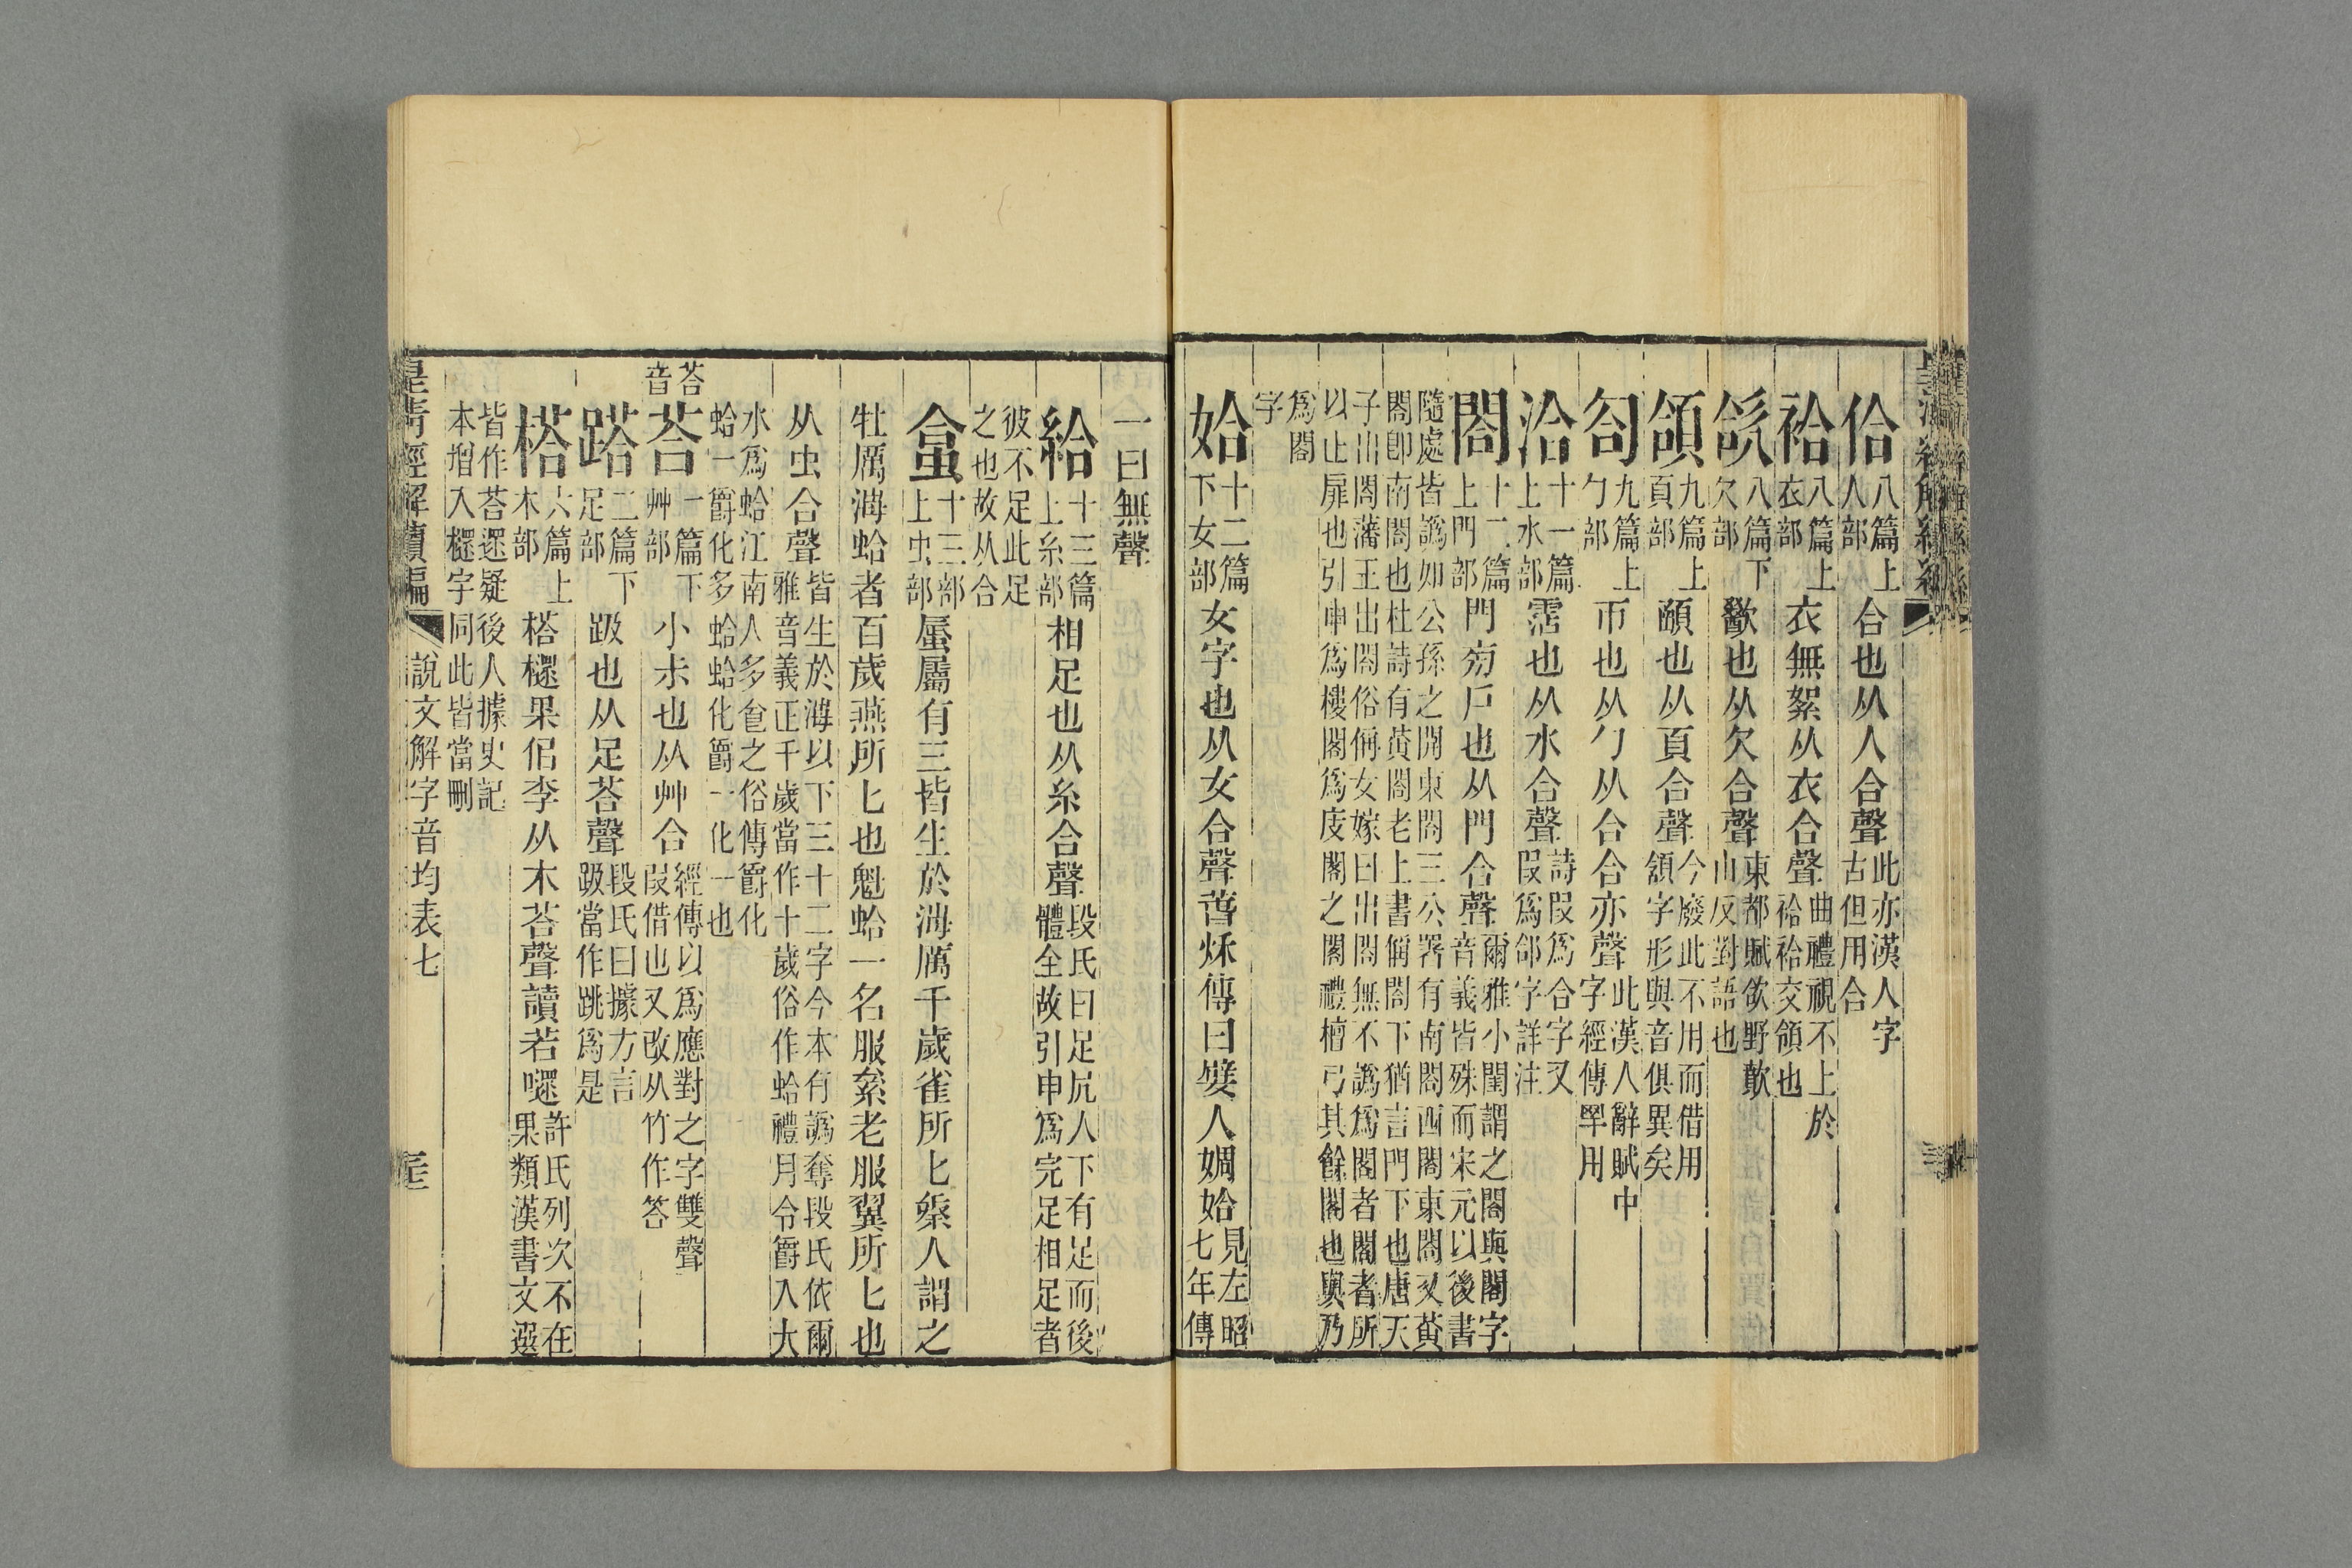 佮八篇上人部合也从人合聲此亦漢人字古但用合
袷八篇上衣部衣無絮从衣合聲曲禮視不上於袷袷交領也
欱八篇下欠部歠也从欠合聲東都賦欲野歕山反對語也
頜九篇上頁部頤也从頁合聲今廢此不用而借用頷字形與音俱異矣
匌九篇上勹部帀也从勹从合合亦聲此漢人辭賦中字經傳罕用
洽十一篇上水部霑也从水合聲詩叚爲合字又叚爲郃字詳注
閤十二篇上門部門㫄戶也从門合聲爾雅小閨謂之閤與閣字音義皆殊而宋元以後書
隨處皆譌如公孫之開東閤三公署有南閤西閤東閤又黃閤卽南閤也杜詩有黃閤老上書偁閤下猶言門下也唐天
子出閤藩王出閤俗偁女嫁曰出閤無不譌爲閣者閣者所以止扉也引申爲樓閣爲庋閣之閣禮檀弓其餘閣也與乃
爲閣
字
姶十二篇下女部女字也从女合聲萅秌傳曰嬖人婤姶見左昭七年傳
一曰無聲
給十三篇上糸部相足也从糸合聲段氏曰足尻人下有足而後體全故引申爲完足相足者
彼不足此足之也故从合
盒十三部上虫部蜃屬有三皆生於海厲千歲雀所匕𥘿人謂之
牡厲海蛤者百歲燕所匕也魁蛤一名服絫老服翼所匕也
从虫合聲皆生於海以下三十二字今本有譌奪段氏依爾雅音義正千歲當作十歲俗作蛤禮月令爵入大
水爲蛤江南人多食之俗傳爵化蛤一爵化多蛤蛤化爵一化一也
荅音荅一篇下艸部小尗也从艸合經傳以爲應對之字雙聲叚借也又改从竹作答
蹹二篇下足部趿也从足荅聲段氏曰據方言趿當作跳爲是
榙六篇上木部榙㯚果佀李从木荅聲讀若嚃許氏列次不在果類漢書文選
皆作荅遝疑後人據史記本增入㯚字同此皆當刪
皇淸經解續編 說文解字音均表七 三